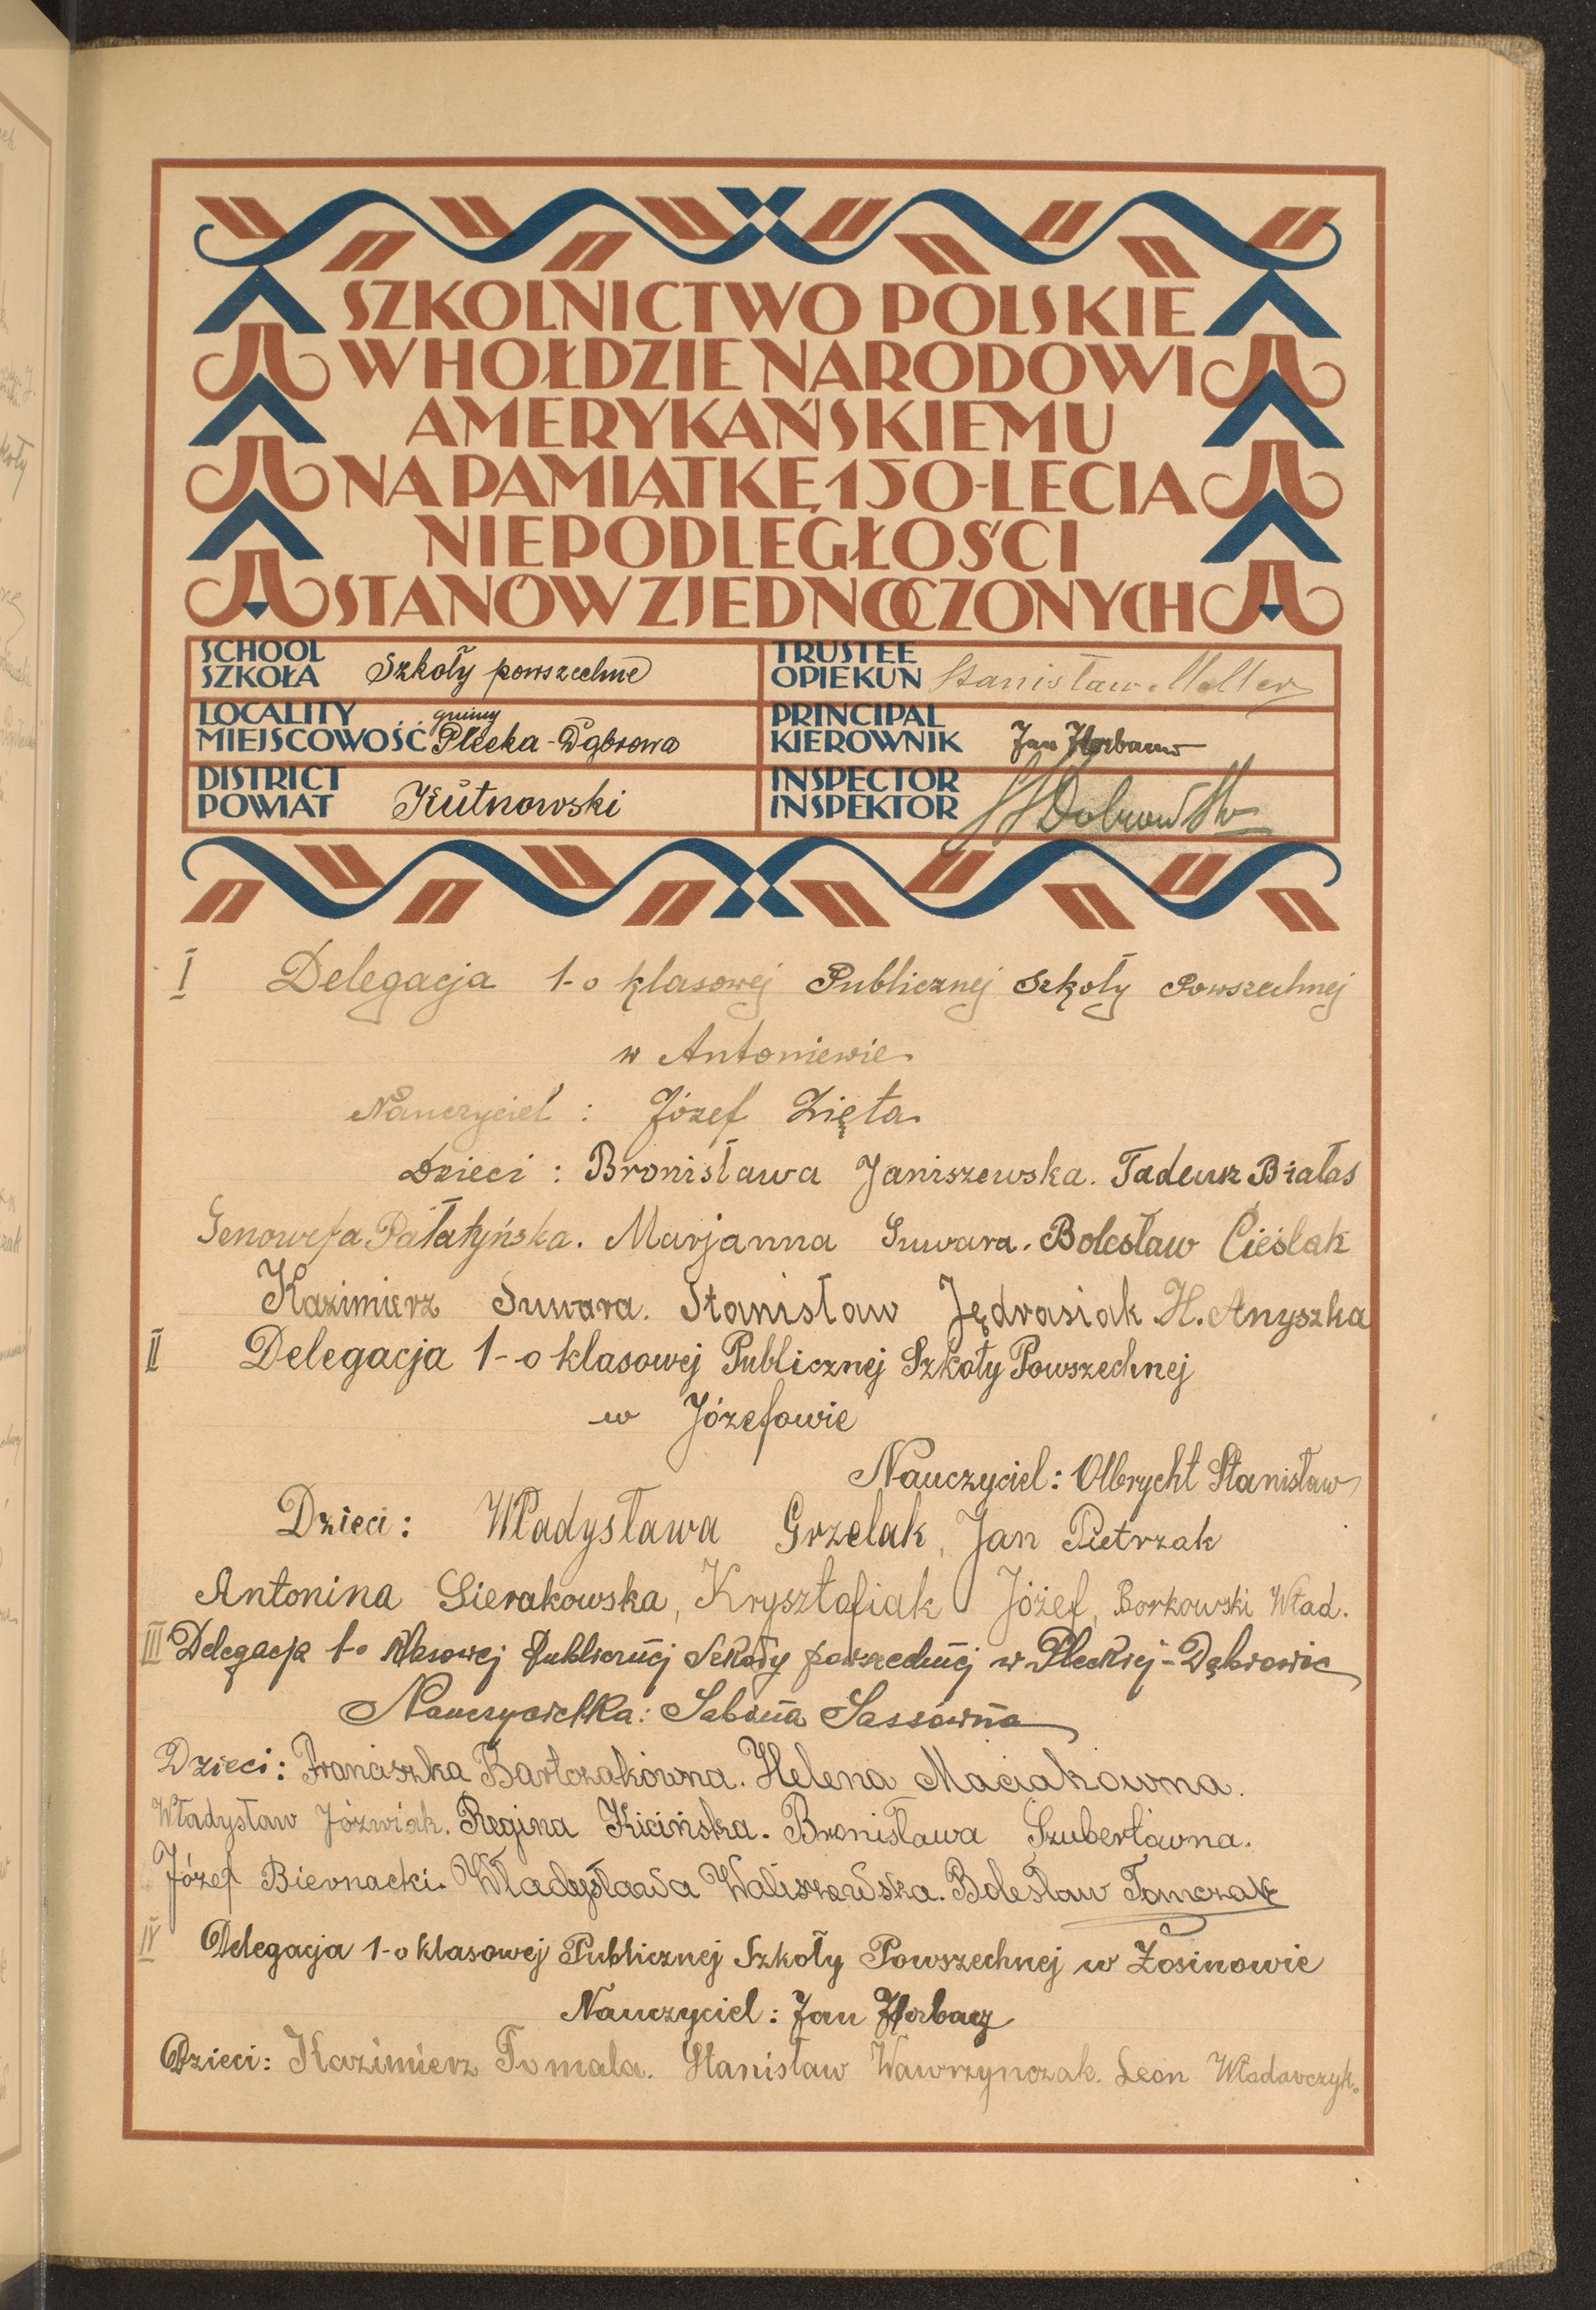 SZKOLNICTWO POLSKIE
W HOŁDZIE NARODOWI
AMERYKAŃSKIEMU
NA PAMIĄTKĘ 150-LECIA
NIEPODLEGŁOŚCI
STANÓW ZJEDNOCZONYCH
SCHOOL
SZKOŁA Szkoły powszechne
TRUSTEE
OPIEKUN Stanisław Meller
LOCALITY gminy
MIEJSCOWOŚĆ Plecka-Dąbrowa
PRINCIPAL
KIEROWNIK Jan Horbacz
DISTRICT
POWIAT Kutnowski
INSPECTOR
INSPEKTOR
I Delegacja 1-o klasowej Publicznej Szkoły Powszechnej
w Antoniewie
Nauczyciel: Józef Zięta
Dzieci: Bronisława Janiszewska. Tadeusz Białas
Genowefa Pałatyńska. Marjanna Suwara. Bolesław Cieślak
Kazimierz Suwara. Stanisław Jędrasiak H. Anyszka
II Delegacja 1-o klasowej Publicznej Szkoły Powszechnej
w Józefowie
Nauczyciel: Olbrycht Stanisław
Dzieci: Władysława Grzelak, Jan Pietrzak
Antonina Sierakowska, Kryształiak Józef, Borkowski Wład.
III Delegacja 1-o klasowej Publicznej Szkoły powszechnej w Pleckiej-Dąbrowie
Nauczycielka: Sabina Sassówna
Dzieci: Franciszka Bartczakówna. Helena Maciakówna.
Władysław Józwiak. Regina Kicińska. Bronisława Szubertówna.
Józef Biernacki. Władysława Waliszewska. Bolesław Tomczak
IV Delegacja 1-o klasowej Publicznej Szkoły Powszechnej w Zosinowie
Nauczyciel: Jan Horbacz
Dzieci: Kazimierz Tomala. Stanisław Wawrzynczak. Leon Włodarczyk.